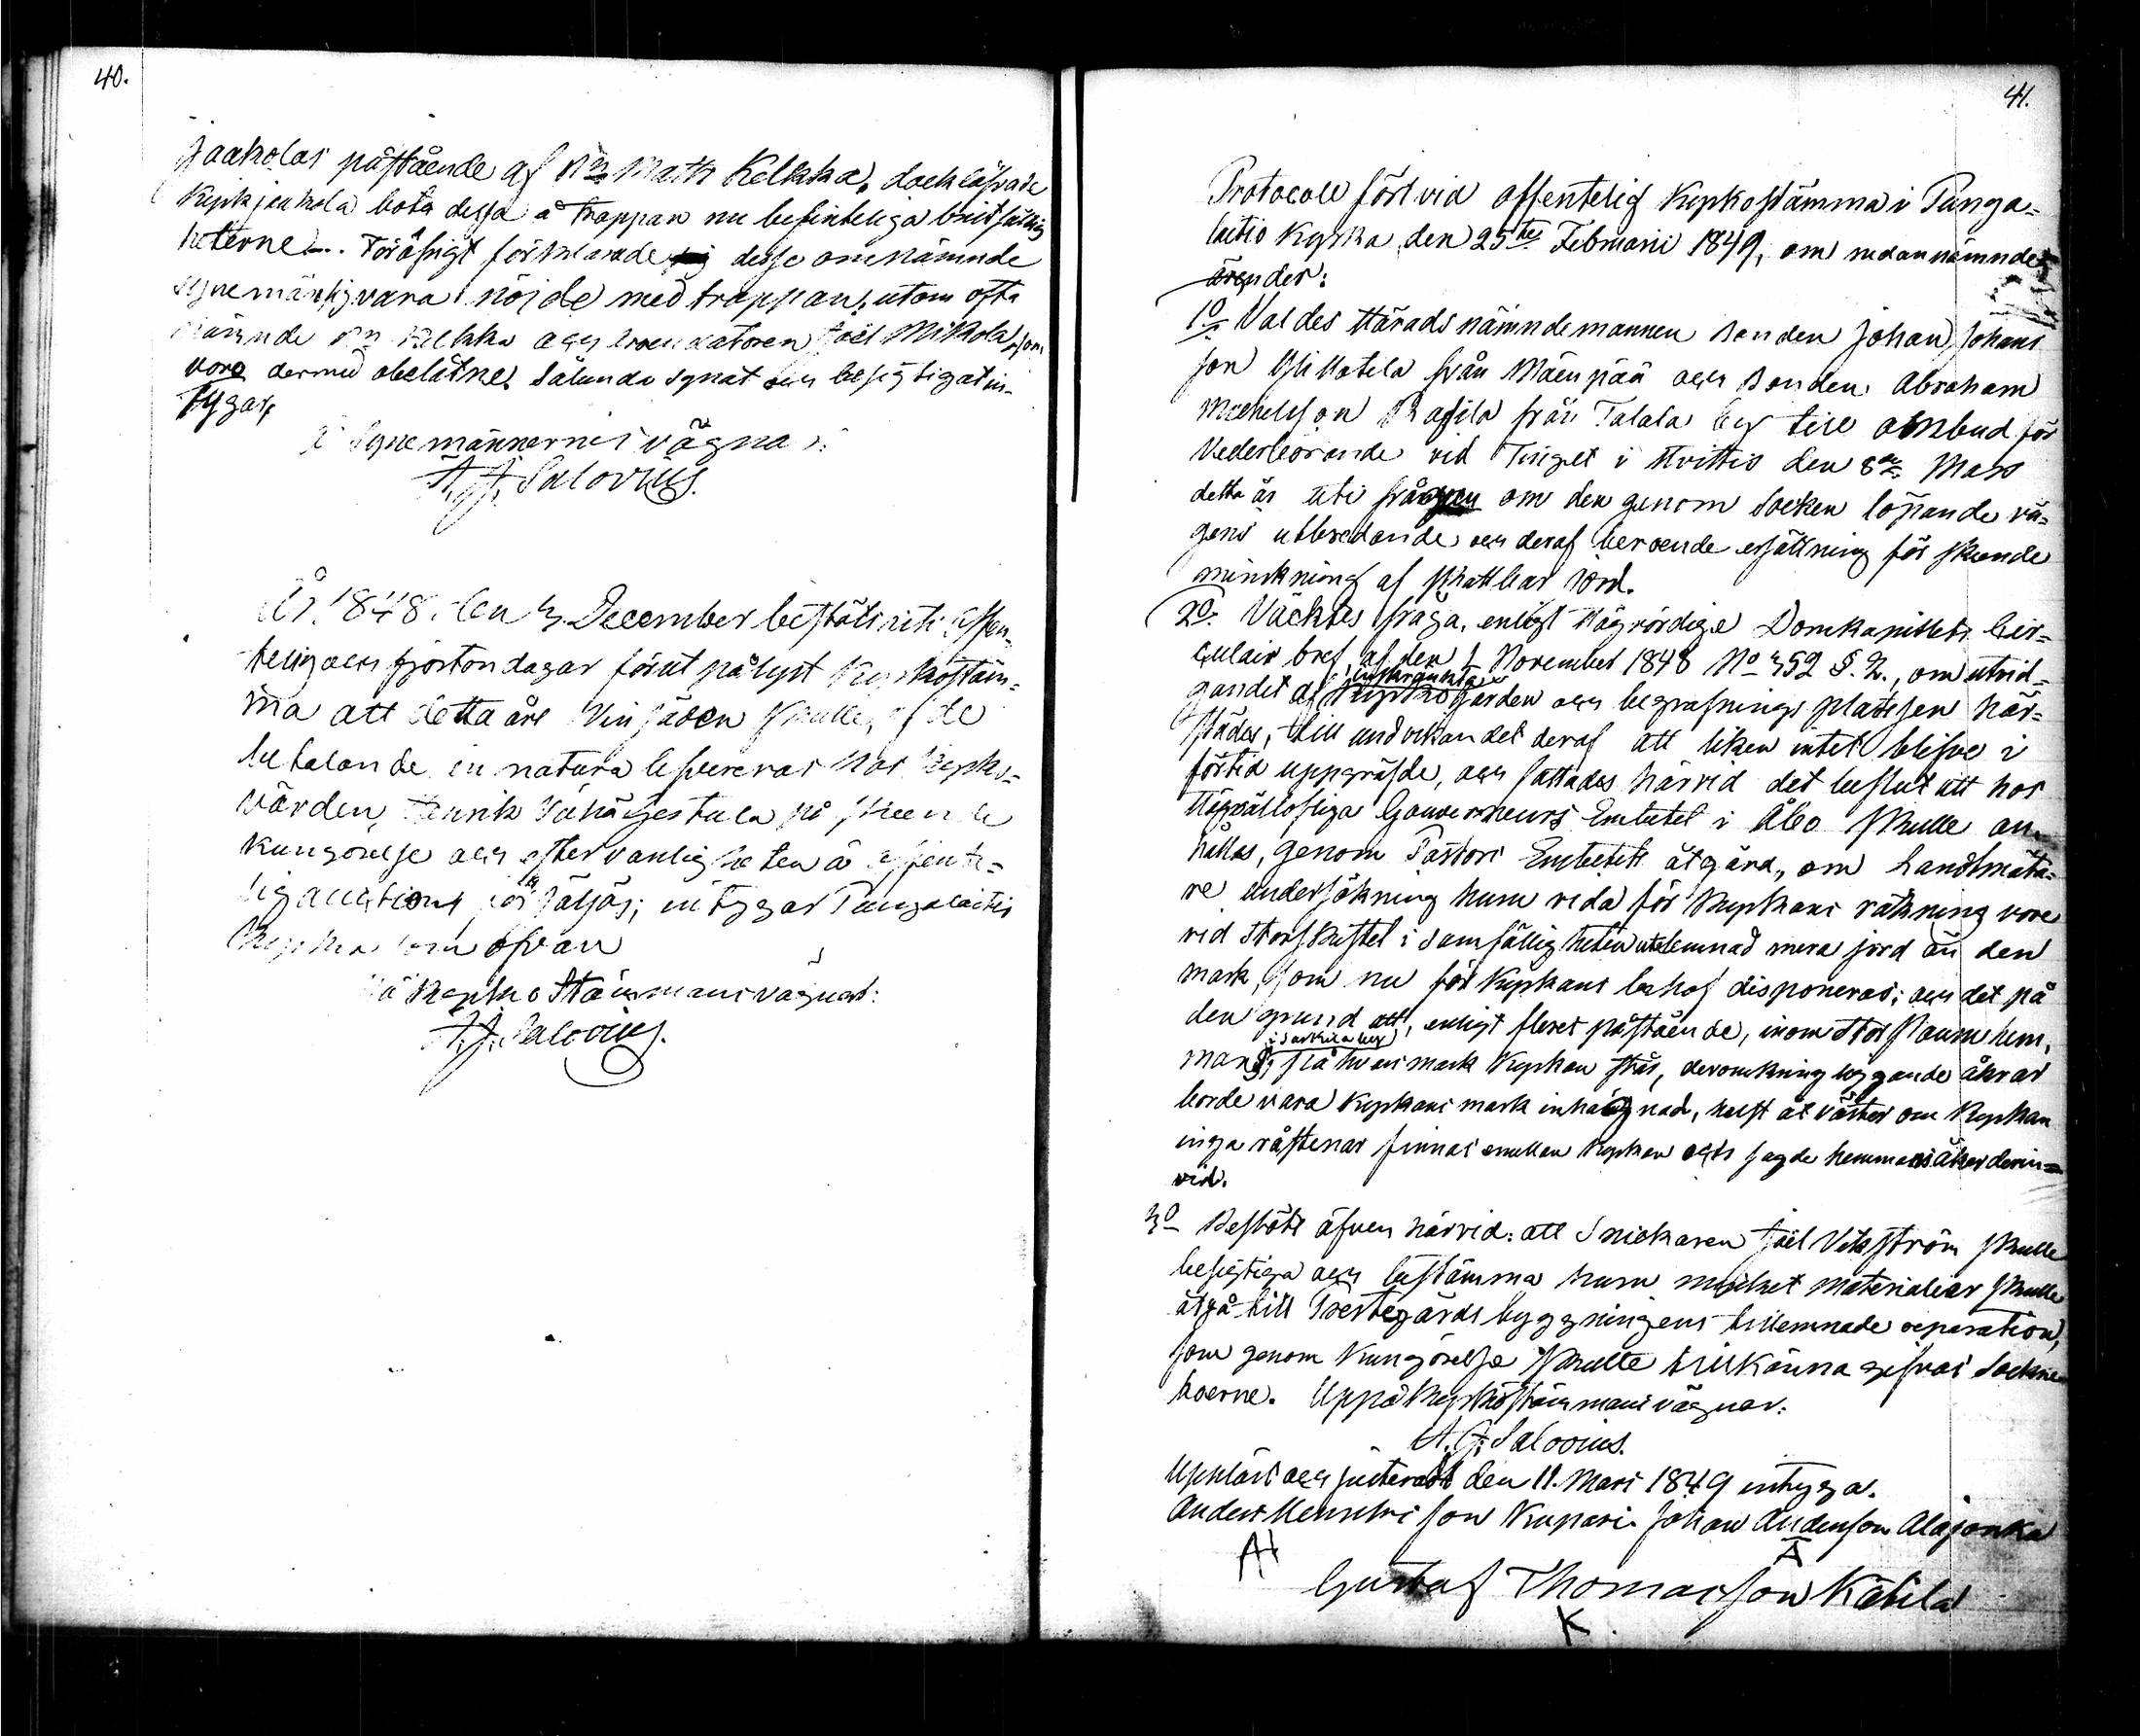 40.
Jaakolas påstående af Bn Matts Kelkka, dock lofvade
Kyrkjaakola bota dessa å trappan nu befinteliga bristfällig
heterne. Föröfrigt förklarade desse omnämnde
synemän sig vara nöjde med trappan, utom ofta
nämnde Bn Kelkka och Brouckatoren Joel Mikola, som
voro dermed obelåtne. Sålunda synat och besigtigat in-
tygar,
å Synemännernes vägnar:
A. J. Salovius.
År 1848 den 3 December beslöts uti offen-
telig och fjorton dagar förut pålyst Kyrkostäm-
ma att detta års Vinsäden skulle, af de
betalande in natura lefvereras hos Kyrko-
värden, Henrik Vähäyjestala på skeende
kungörelse och efter vanligheten å offente-
lig auction försäljas; intygar Pungalaitio
Kyrka som ofvan
På Kyrko Stämmans vägnar:
A. J. Salovius.
41.
Protocoll fördt vid offentelig Kyrkostämma i Punga-
laitio Kyrka den 25te Februarii 1849, om nedannämnde
ärender:
1o Valdes Häradsnämndemannen Bonden Johan Johans
son Yli Kotila från Mäenpää och Bonden Abraham
Michelsson Rafila från Talala by till ombud för
Vederbörande vid Tinget i Hvittis den 8de Mars
detta år uti frågan om den genom Socken löpande vä-
gens utbredande och deraf beroende ersättning för skeende
minskning af skattbar jord.
2o Väcktes fråga, enligt Högvördige Domkapitlets Cir-
culair bref, af den 1 November 1848 No 352 §. 2., om utvid-
gandet af Kyrkogården och begrafnings platsen här-
städes, till undvikandet deraf att liken intet blifve i
förtid uppgräfde, och fattades härvid det beslut att hos
Högvällofliga Gouverneurs Embetet i Åbo skulle an-
hållas, genom Pastors Embetets åtgärd, om Landtmäta-
re undersökning huruvida för Kyrkans räkning vore
vid Storskiftet i Samfälligheten utelemnad mera jord än den
mark, som nu för Kyrkans behof disponeras; och det på
den grund att, enligt fleres påstående, inom Stor Raumi hem-
mans, i Sarkila by på hvars mark Kyrkan står, deromkring liggande åkrar
borde vara Kyrkans mark inhägnad, helst åt väster om Kyrkan
inga råstenar finnas emellan Kyrkan och sagde hemmans åker derin-
vid.
3o Beslöts äfven härvid: att Snickaren Joel Vikström skulle
besigtiga och bestämma huru mycket materialier skulle
åtgå till Prestegårds byggningens tillemnade reparation,
som genom Kungörelse skulle tillkänna gifvas Sockne
boerne. Uppå Kyrkostämmans vägnar:
A. J. Salovius.
Uppläst och justeradt den 11. Mars 1849 intyga.
Anders Henriksson Kupari. Johan Andersson Alajonka
AH A
Gustaf Thomasson Kätilä
K.